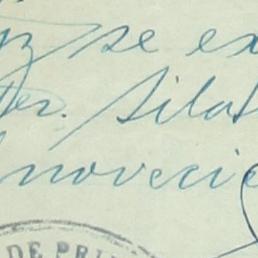 z se ex
ter. Silas
novecie
DE PRI